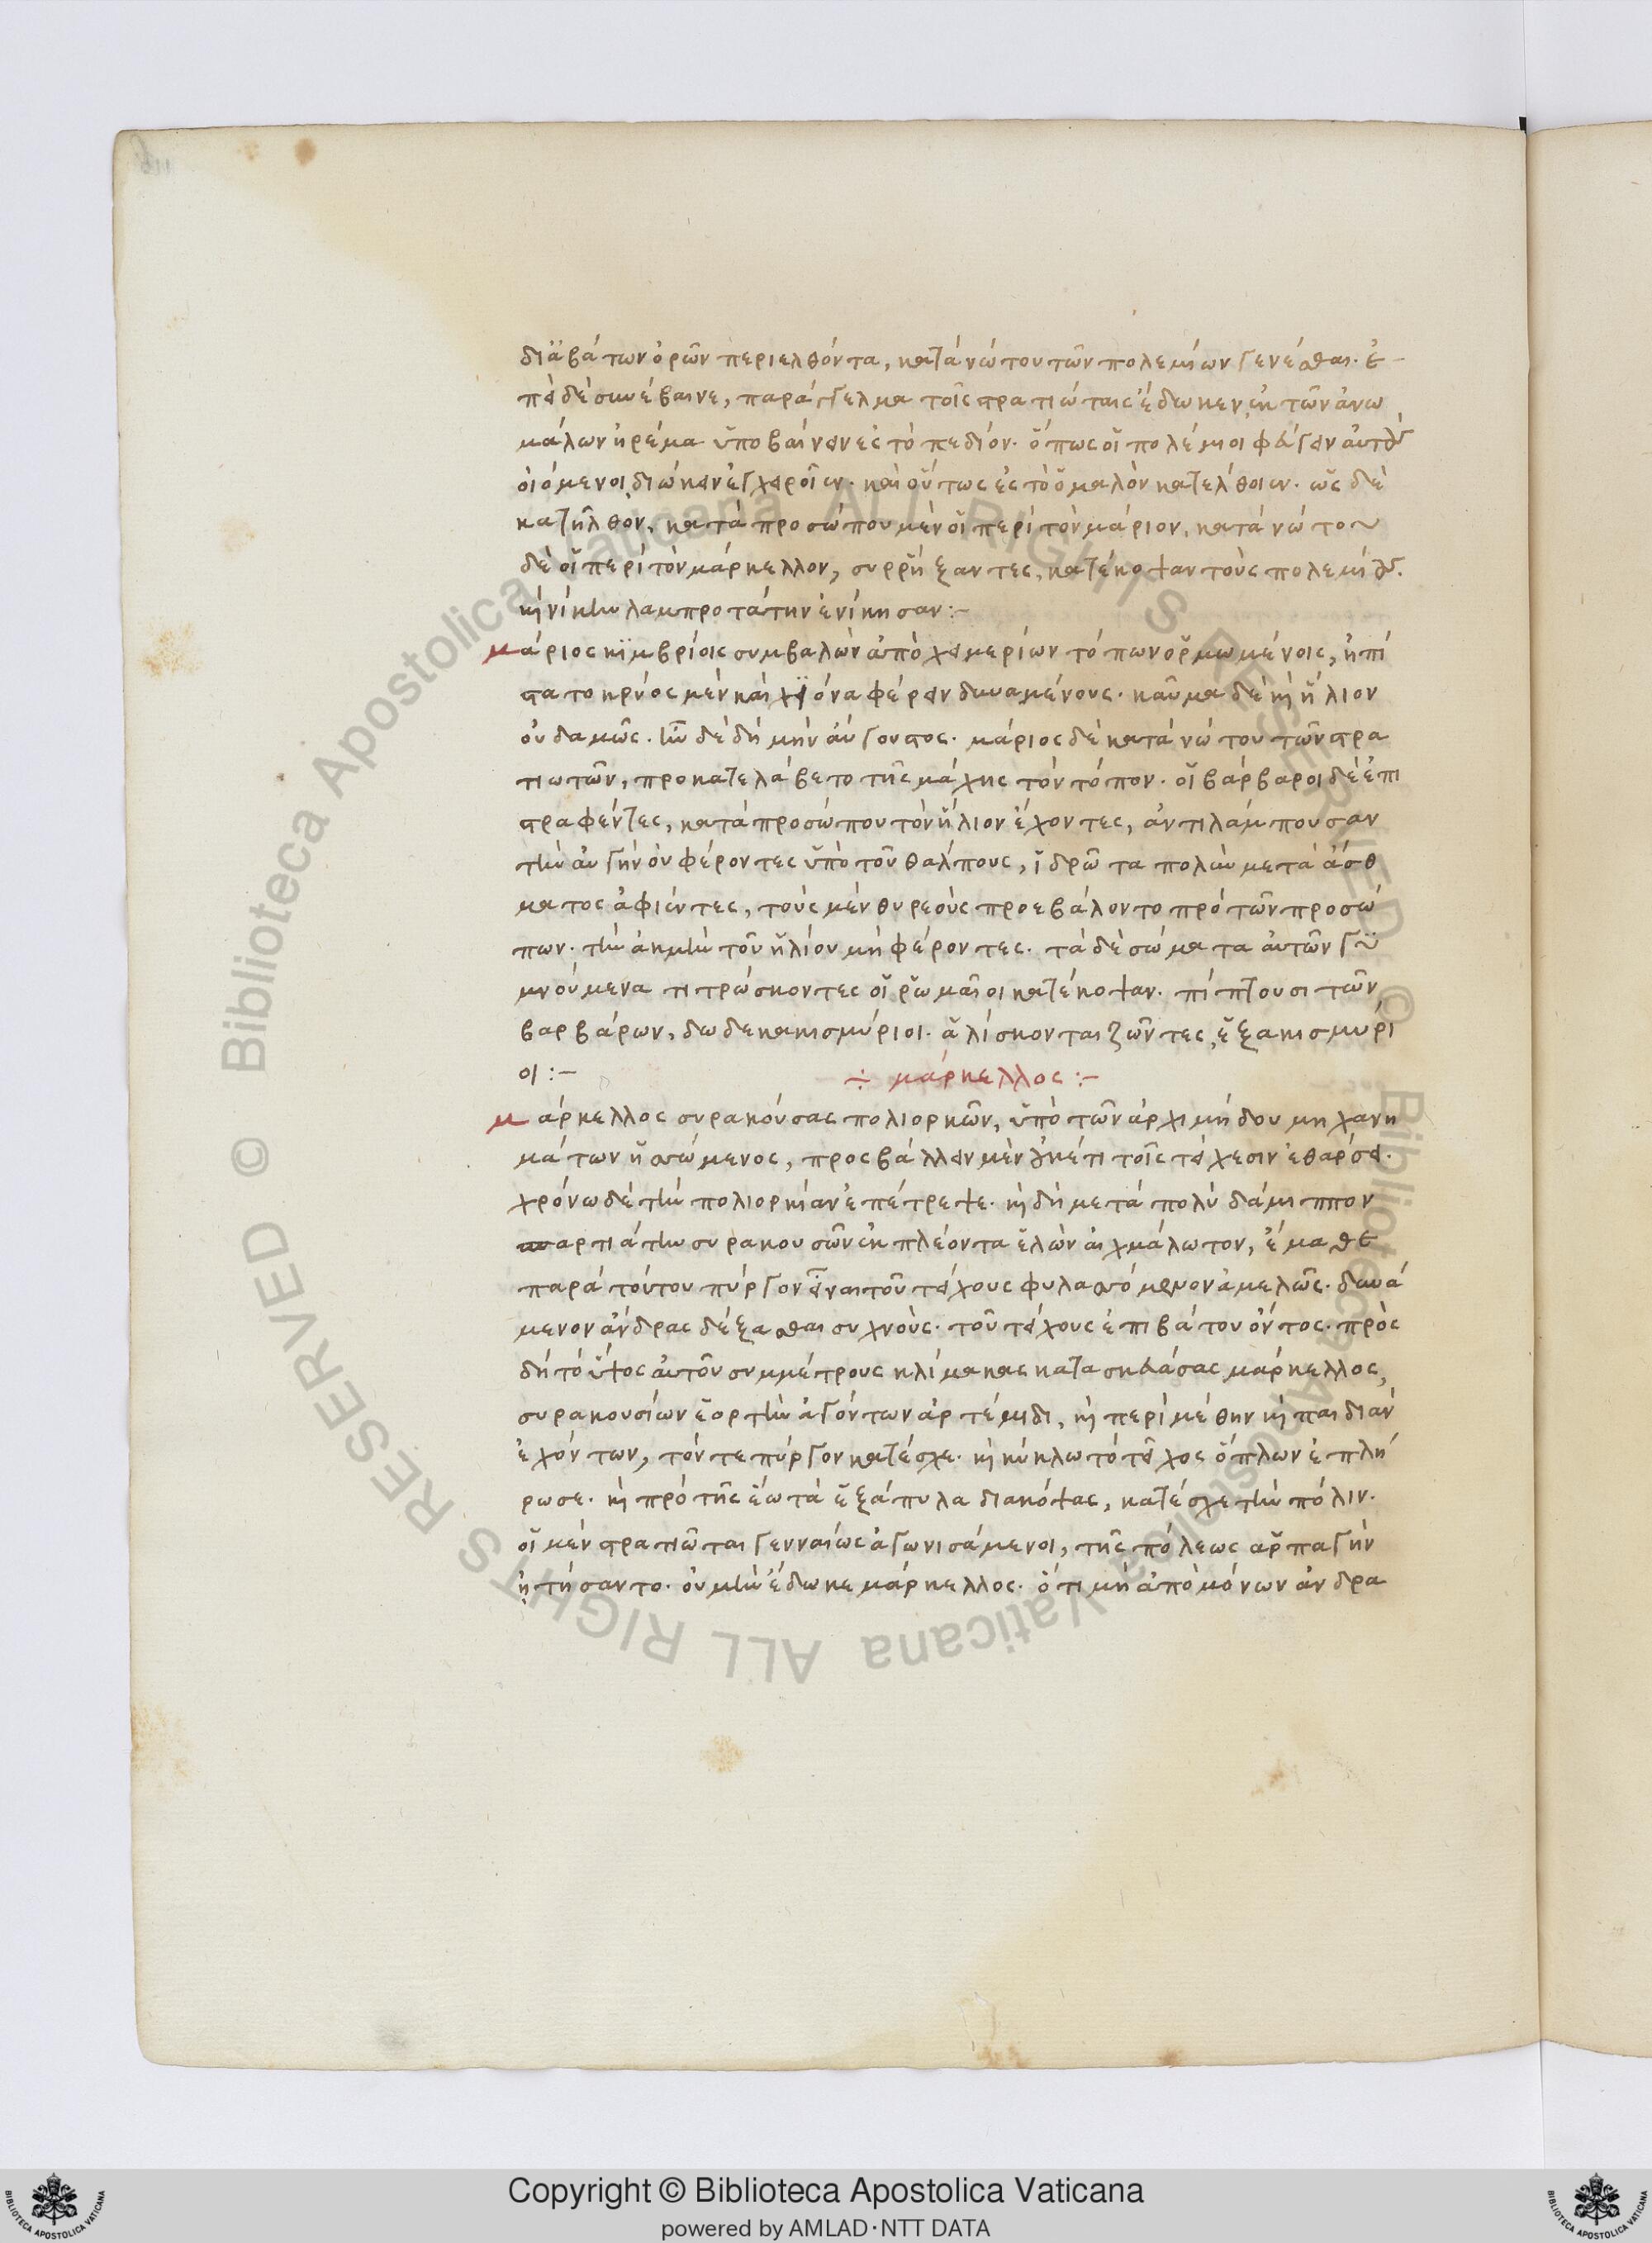 διαβάτων ὀρῶν περιελθόντα, κατὰ νώτου τῶν πολεμίων γενέσθαι. ἐ-
πεὶ δὲ συνέβαινε, παράγγελμα τοῖς στρατιώταις ἔδωκεν, ἐκ τῶν ἀνω
μάλων ἠρέμα ὑποβαίνειν ἐς τὸ πεδίον. ὅπως οἱ πολέμιοι φεύγειν αὐτοὺς
οἰόμενοι, διώκειν ἐγχειροῖεν. καὶ οὕτως ἐς τὸ ὁμαλὸν κατέλθοιεν. ὡς δὲ
κατῆλθον, κατὰ προσώπου μὲν οἱ περὶ τὸν μάριον, κατὰ νώτου
δὲ οἱ περὶ τὸν μάρκελλον, συρρήξαντες, κατέκοψαν τοὺς πολεμίους.
καὶ νίκην λαμπροτάτην ἐνίκησαν :-
μάριος κίμβροις συμβαλὼν ἀπὸ χειμερίων τόπων ὁρμωμένοις, ἠπί
στατο κρύος μὲν καὶ χιόνα φέρειν δυναμένους. καῦμα δὲ καὶ ἥλιον
οὐδαμῶς. ἦν δὲ δὴ μὴν αὔγουστος. μάριος δὲ κατὰ νώτου τῶν στρα
τιωτῶν, προκατελάβετο τῆς μάχης τὸν τόπον. οἱ βάρβαροι δὲ ἐπι
στραφέντες, κατὰ προσώπου τὸν ἥλιον ἔχοντες, ἀντιλάμπουσαν
τὴν αὐγὴν οὐ φέροντες ὑπὸ τοῦ θάλπους, ἱδρῶτα πολὺν μετὰ ἄσθ
ματος ἀφιέντες, τοὺς μὲν θυρεοὺς προεβάλοντο πρὸ τῶν προσώ
πων. τὴν ἀκμὴν τοῦ ἡλίου μὴ φέροντες. τὰ δὲ σώματα αὐτῶν γυ
μνούμενα τιτρώσκοντες οἱ ῥωμαῖοι κατέκοψαν. πίπτουσι τῶν
βαρβάρων, δωδεκακισμύριοι. ἁλίσκονται ζῶντες, ἑξακισμύρι
οι :- ÷ μάρκελλος :-
μάρκελλος συρακούσας πολιορκῶν, ὑπὸ τῶν ἀρχιμήδου μηχανη
μάτων ἡττώμενος, προσβάλλειν μὲν οὐκέτι τοῖς τείχεσιν ἐθάρσει.
χρόνω δὲ τὴν πολιορκίαν ἐπέτρεψε. καὶ δὴ μετὰ πολὺ δάμιππον
σπαρτιάτην συρακουσῶν ἐκπλέοντα ἑλὼν αἰχμάλωτον, ἔμαθε
παρὰ τούτου πύργον εἶναι τοῦ τείχους φυλαττόμενον ἀμελῶς. δυνά
μενον ἄνδρας δέξασθαι συχνούς. τοῦ τείχους ἐπιβάτου ὄντος. πρὸς
δὴ τὸ ὕψος αὐτοῦ συμμέτρους κλίμακας κατασκευάσας μάρκελλος,
συρακουσίων ἑορτὴν ἀγόντων ἀρτέμιδι, καὶ περὶ μέθην καὶ παιδιὰν
ἐχόντων, τόν τε πύργον κατέσχε. καὶ κύκλω τὸ τεῖχος ὅπλων ἐπλή
ρωσε. καὶ πρὸ τῆς ἕω τὰ ἑξάπυλα διακόψας, κατέσχε τὴν πόλιν.
οἱ μὲν στρατιῶται γενναίως ἀγωνισάμενοι, τῆς πόλεως ἁρπαγὴν
ᾐτήσαντο. οὐ μὴν ἔδωκε μάρκελλος. ὅτι μὴ ἀπὸ μόνων ἀνδρα
© Biblioteca Apostolica Vaticana ALL RIGHTS RESERVED
© Biblioteca Apostolica Vaticana ALL RIGHTS RESERVED
Copyright © Biblioteca Apostolica Vaticana
powered by AMLAD·NTT DATA
BIBLIOTECA APOSTOLICA VATICANA
BIBLIOTECA APOSTOLICA VATICANA